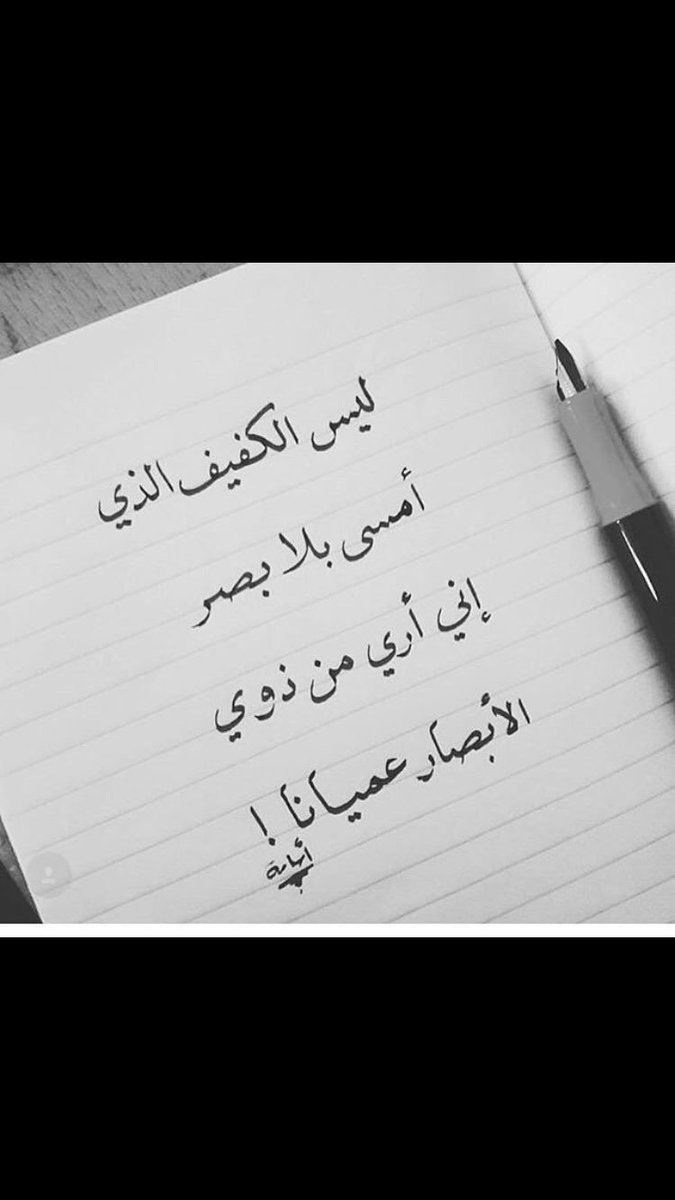 ليس الكفيف الذي
أمسى بلا بصر
إني أري من ذوي
الأبصار عميانا !